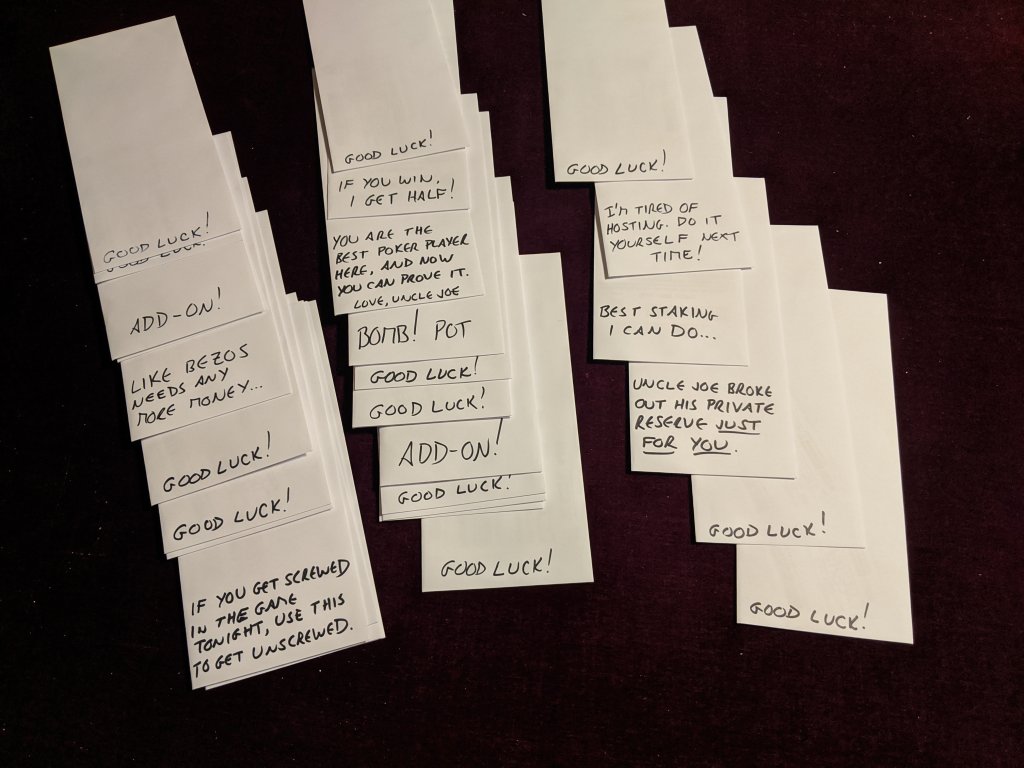 GOOD LUCK!
GOOD LUCK!
ADD-ON!
LIKE BEZOS
NEEDS ANY
MORE MONEY...
GOOD LUCK!
GOOD LUCK!
IF YOU GET SCREWED
IN THE GAME
TONIGHT, USE THIS
TO GET UNSCREWED.
GOOD LUCK!
IF YOU WIN,
I GET HALF!
YOU ARE THE
BEST POKER PLAYER
HERE, AND NOW
YOU CAN PROVE IT.
LOVE, UNCLE JOE
BOMB! POT
GOOD LUCK!
GOOD LUCK!
ADD-ON!
GOOD LUCK!
GOOD LUCK!
GOOD LUCK!
I'M TIRED OF
HOSTING. DO IT
YOURSELF NEXT
TIME!
BEST STAKING
I CAN DO...
UNCLE JOE BROKE
OUT HIS PRIVATE
RESERVE JUST
FOR YOU.
GOOD LUCK!
GOOD LUCK!